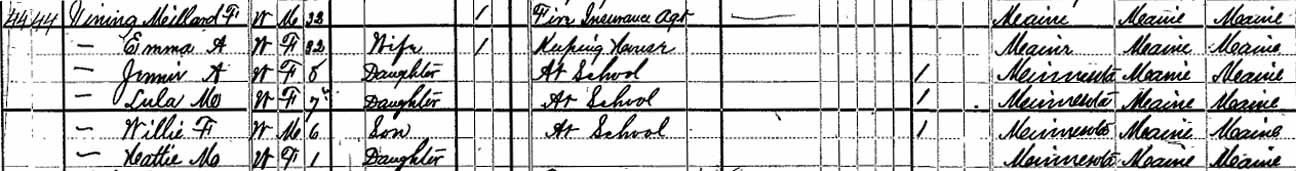 44 44 Vining Millard F W M 32 1 Fire Insurance Agt — Maine Maine Maine
— Emma A W F 32 Wife 1 Keeping House Maine Maine Maine
— Jennie A W F 8 Daughter At School 1 Minnesota Maine Maine
— Lula M W F 7 Daughter At School 1 Minnesota Maine Maine
— Willie F W M 6 Son At School 1 Minnesota Maine Maine
— Hattie M W F 1 Daughter Minnesota Maine Maine